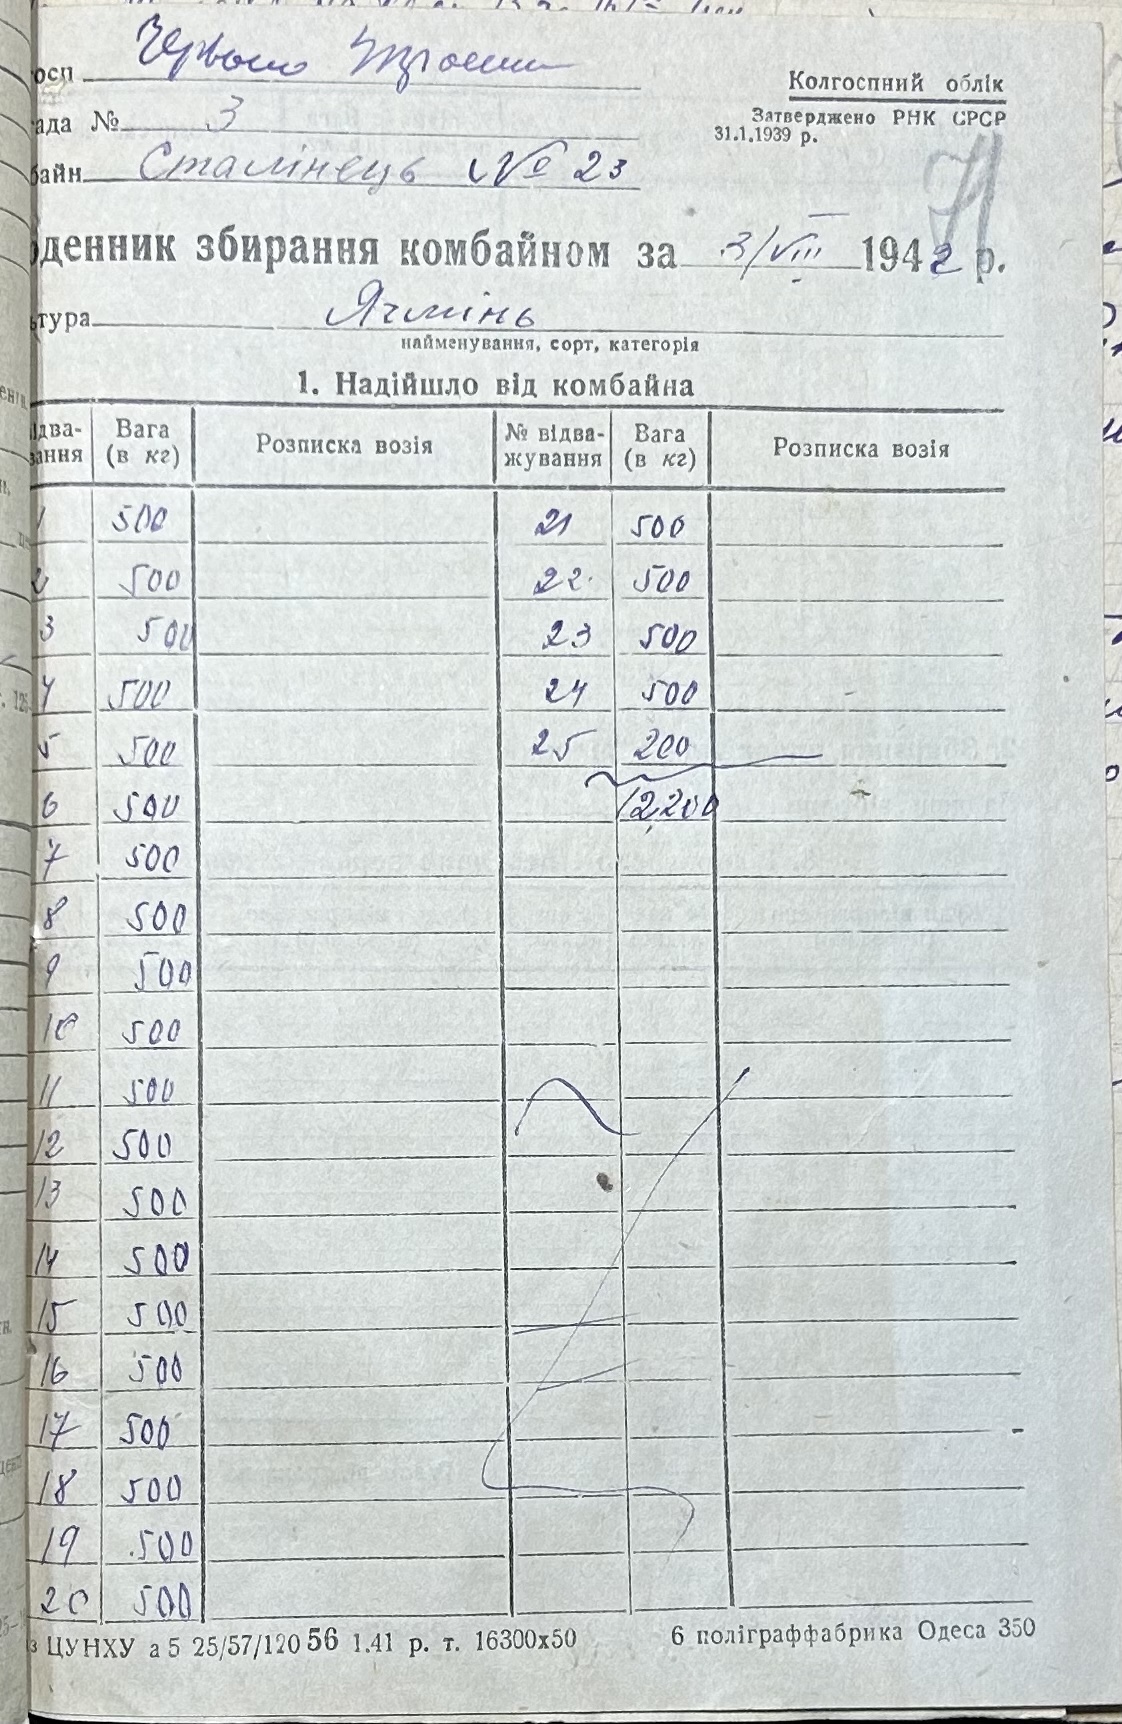 осп Червоно
ада № 3
байн Сталінець № 23
Колгоспний облік
Затверджено РНК СРСР
31.1.1939 р.
71
денник збирання комбайном за 3/VIII 1942 р.
тура Ячмінь
найменування, сорт, категорія
1. Надійшло від комбайна
ідва-жання Вага (в кг) Розписка возія № відва-жування Вага (в кг) Розписка возія
1 500 21 500
2 500 22 500
3 500 23 500
4 500 24 500
5 500 25 200
6 500 12,200
7 500
8 500
9 500
10 500
11 500
12 500
13 500
14 500
15 500
16 500
17 500
18 500
19 500
20 500
з ЦУНХУ а 5 25/57/120 56 1.41 р. т. 16300х50 6 поліграффабрика Одеса 350